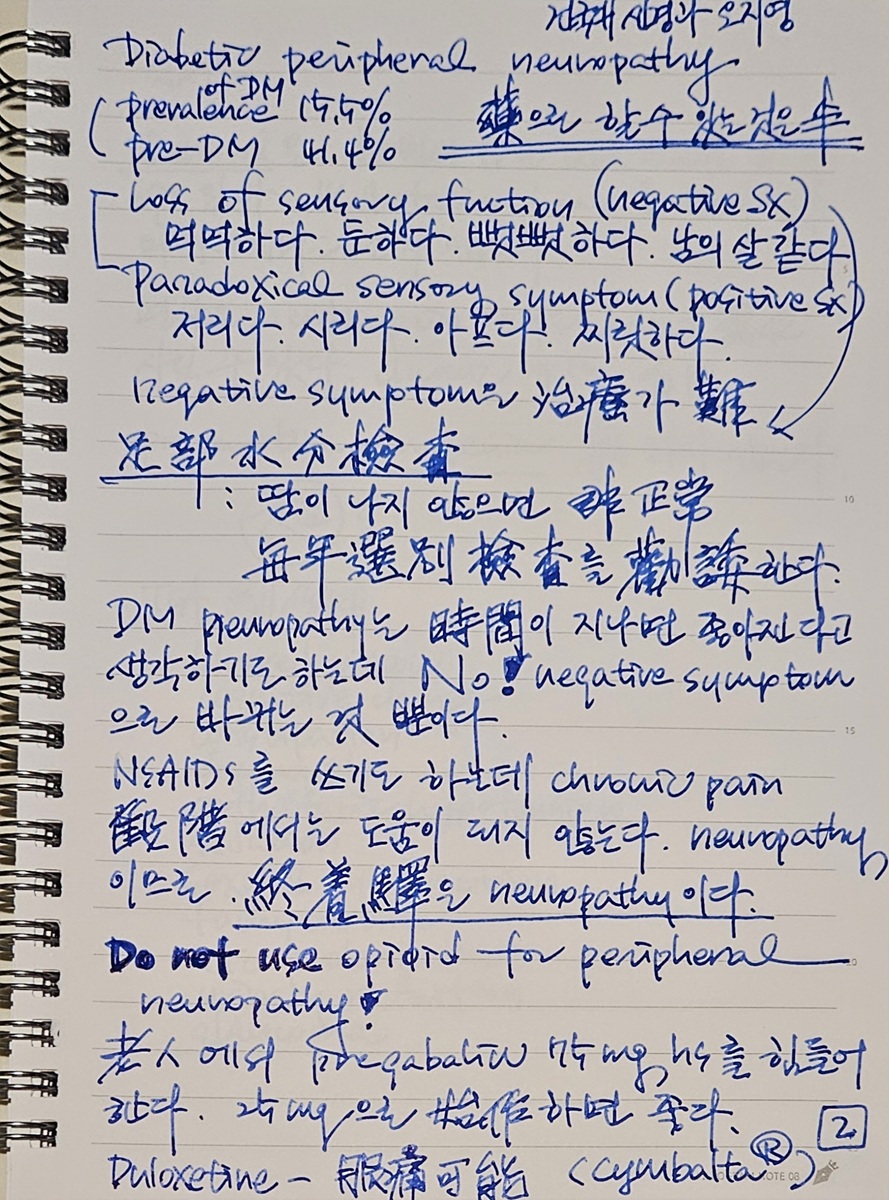 건국대 신경과 오지영
Diabetic peripheral neuropathy
prevalence of DM 15.5%
pre-DM 41.4%
藥으로 할 수 있는 것은 半
Loss of sensory function (negative Sx)
먹먹하다. 둔하다. 뻣뻣하다. 남의 살 같다
Paradoxical sensory symptom (positive sx)
저리다. 시리다. 아프다. 찌릿하다.
negative symptom은 治療가 難
足部水分檢査
: 땀이 나지 않으면 非正常
每年 選別檢査를 勸하한다.
DM neuropathy는 時間이 지나면 좋아진다고
생각하기도 하는데 No! negative symptom
으로 바뀌는 것 뿐이다.
NSAIDS를 쓰기도 하는데 chronic pain
段階에서는 도움이 되지 않는다. neuropathy
이므로 終着驛은 neuropathy이다.
Do not use opioid for peripheral
neuropathy!
老人에서 pregabalin 75mg hs를 힘들어
한다. 25mg으로 始作하면 좋다.
Duloxetine - 腹痛可能 (cymbalta®)
2